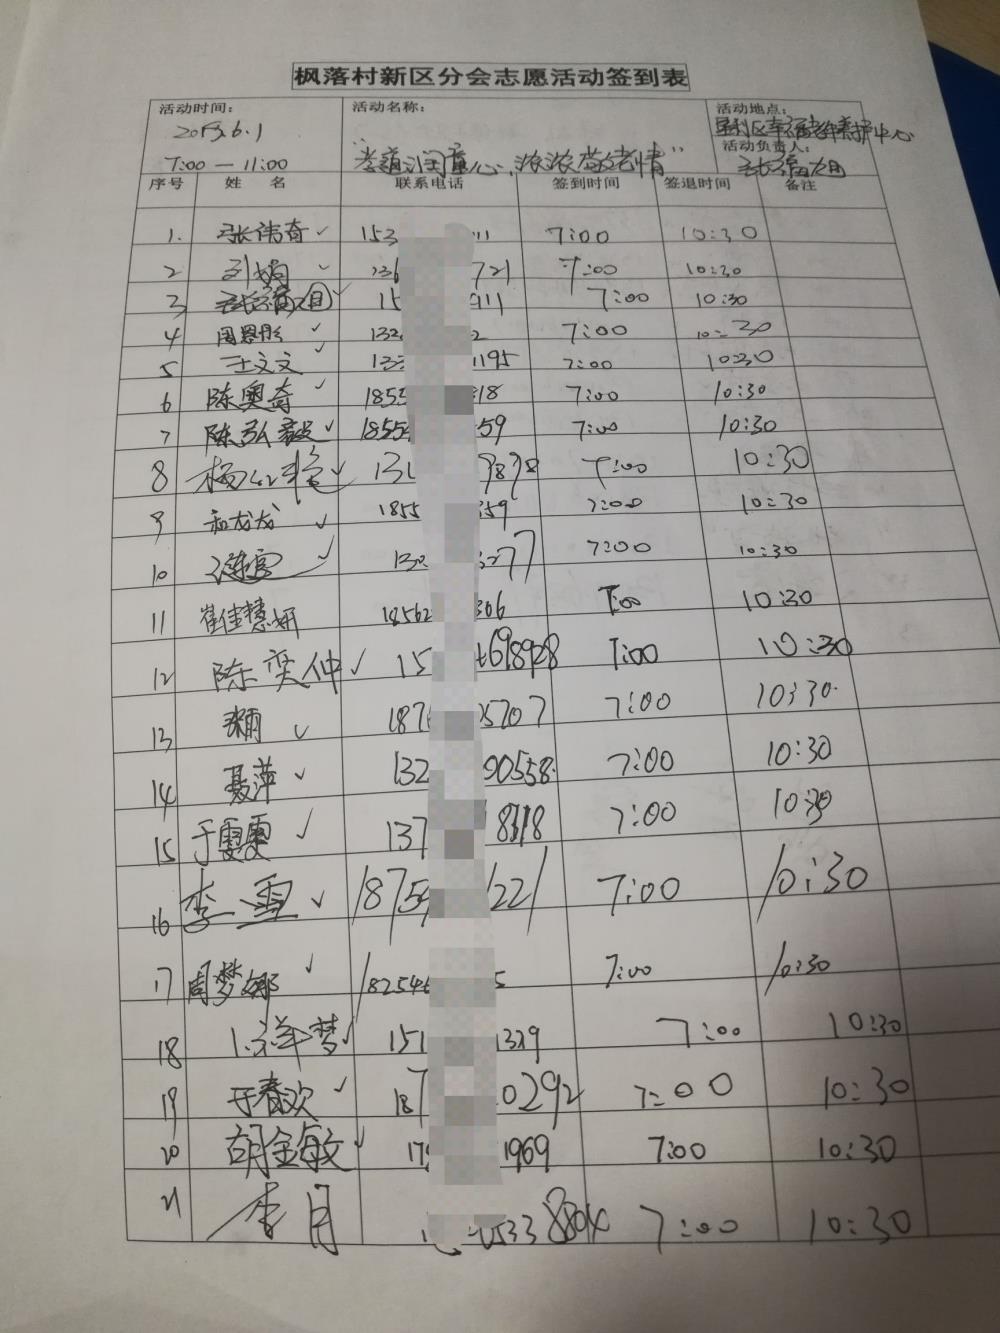 枫落村新区分会志愿活动签到表
活动时间： 活动名称： 活动地点：
6.1 垦利区幸福老年养护中心
7:00 — 11:00 "孝道润童心，浓浓敬老情" 活动负责人：
序号 姓名 联系电话 签到时间 签退时间 备注
1. 张伟奇 ✓ 153 111 7:00 10:30
2 刘娟 ✓ 136 721 7:00 10:30
3 ✓ 15 911 7:00 10:30
4 周恩彤 ✓ 132 2 7:00 10:30
5 王文文 ✓ 133 1195 7:00 10:30
6 陈奥奇 ✓ 1855 818 7:00 10:30
7 陈弘毅 ✓ 1855 59 7:00 10:30
8 杨红艳 ✓ 13 7:00 10:30
9 和龙龙 ✓ 1855 359 7:00 10:30
10 ✓ 130 77 7:00 10:30
11 崔佳慧妍 18562 306 7:00 10:30
12 陈奕仲 ✓ 15 698928 7:00 10:30
13 ✓ 187 5707 7:00 10:30
14 聂萍 ✓ 132 00558 7:00 10:30
15 于雯雯 ✓ 137 8118 7:00 10:30
16 李雪 ✓ 1875 221 7:00 10:30
17 周梦娜 ✓ 18254 5 7:00 10:30
18 ✓ 151 1329 7:00 10:30
19 于春欢 ✓ 187 0292 7:00 10:30
20 胡金敏 ✓ 17 1969 7:00 10:30
21 李月 0533 7:00 10:30